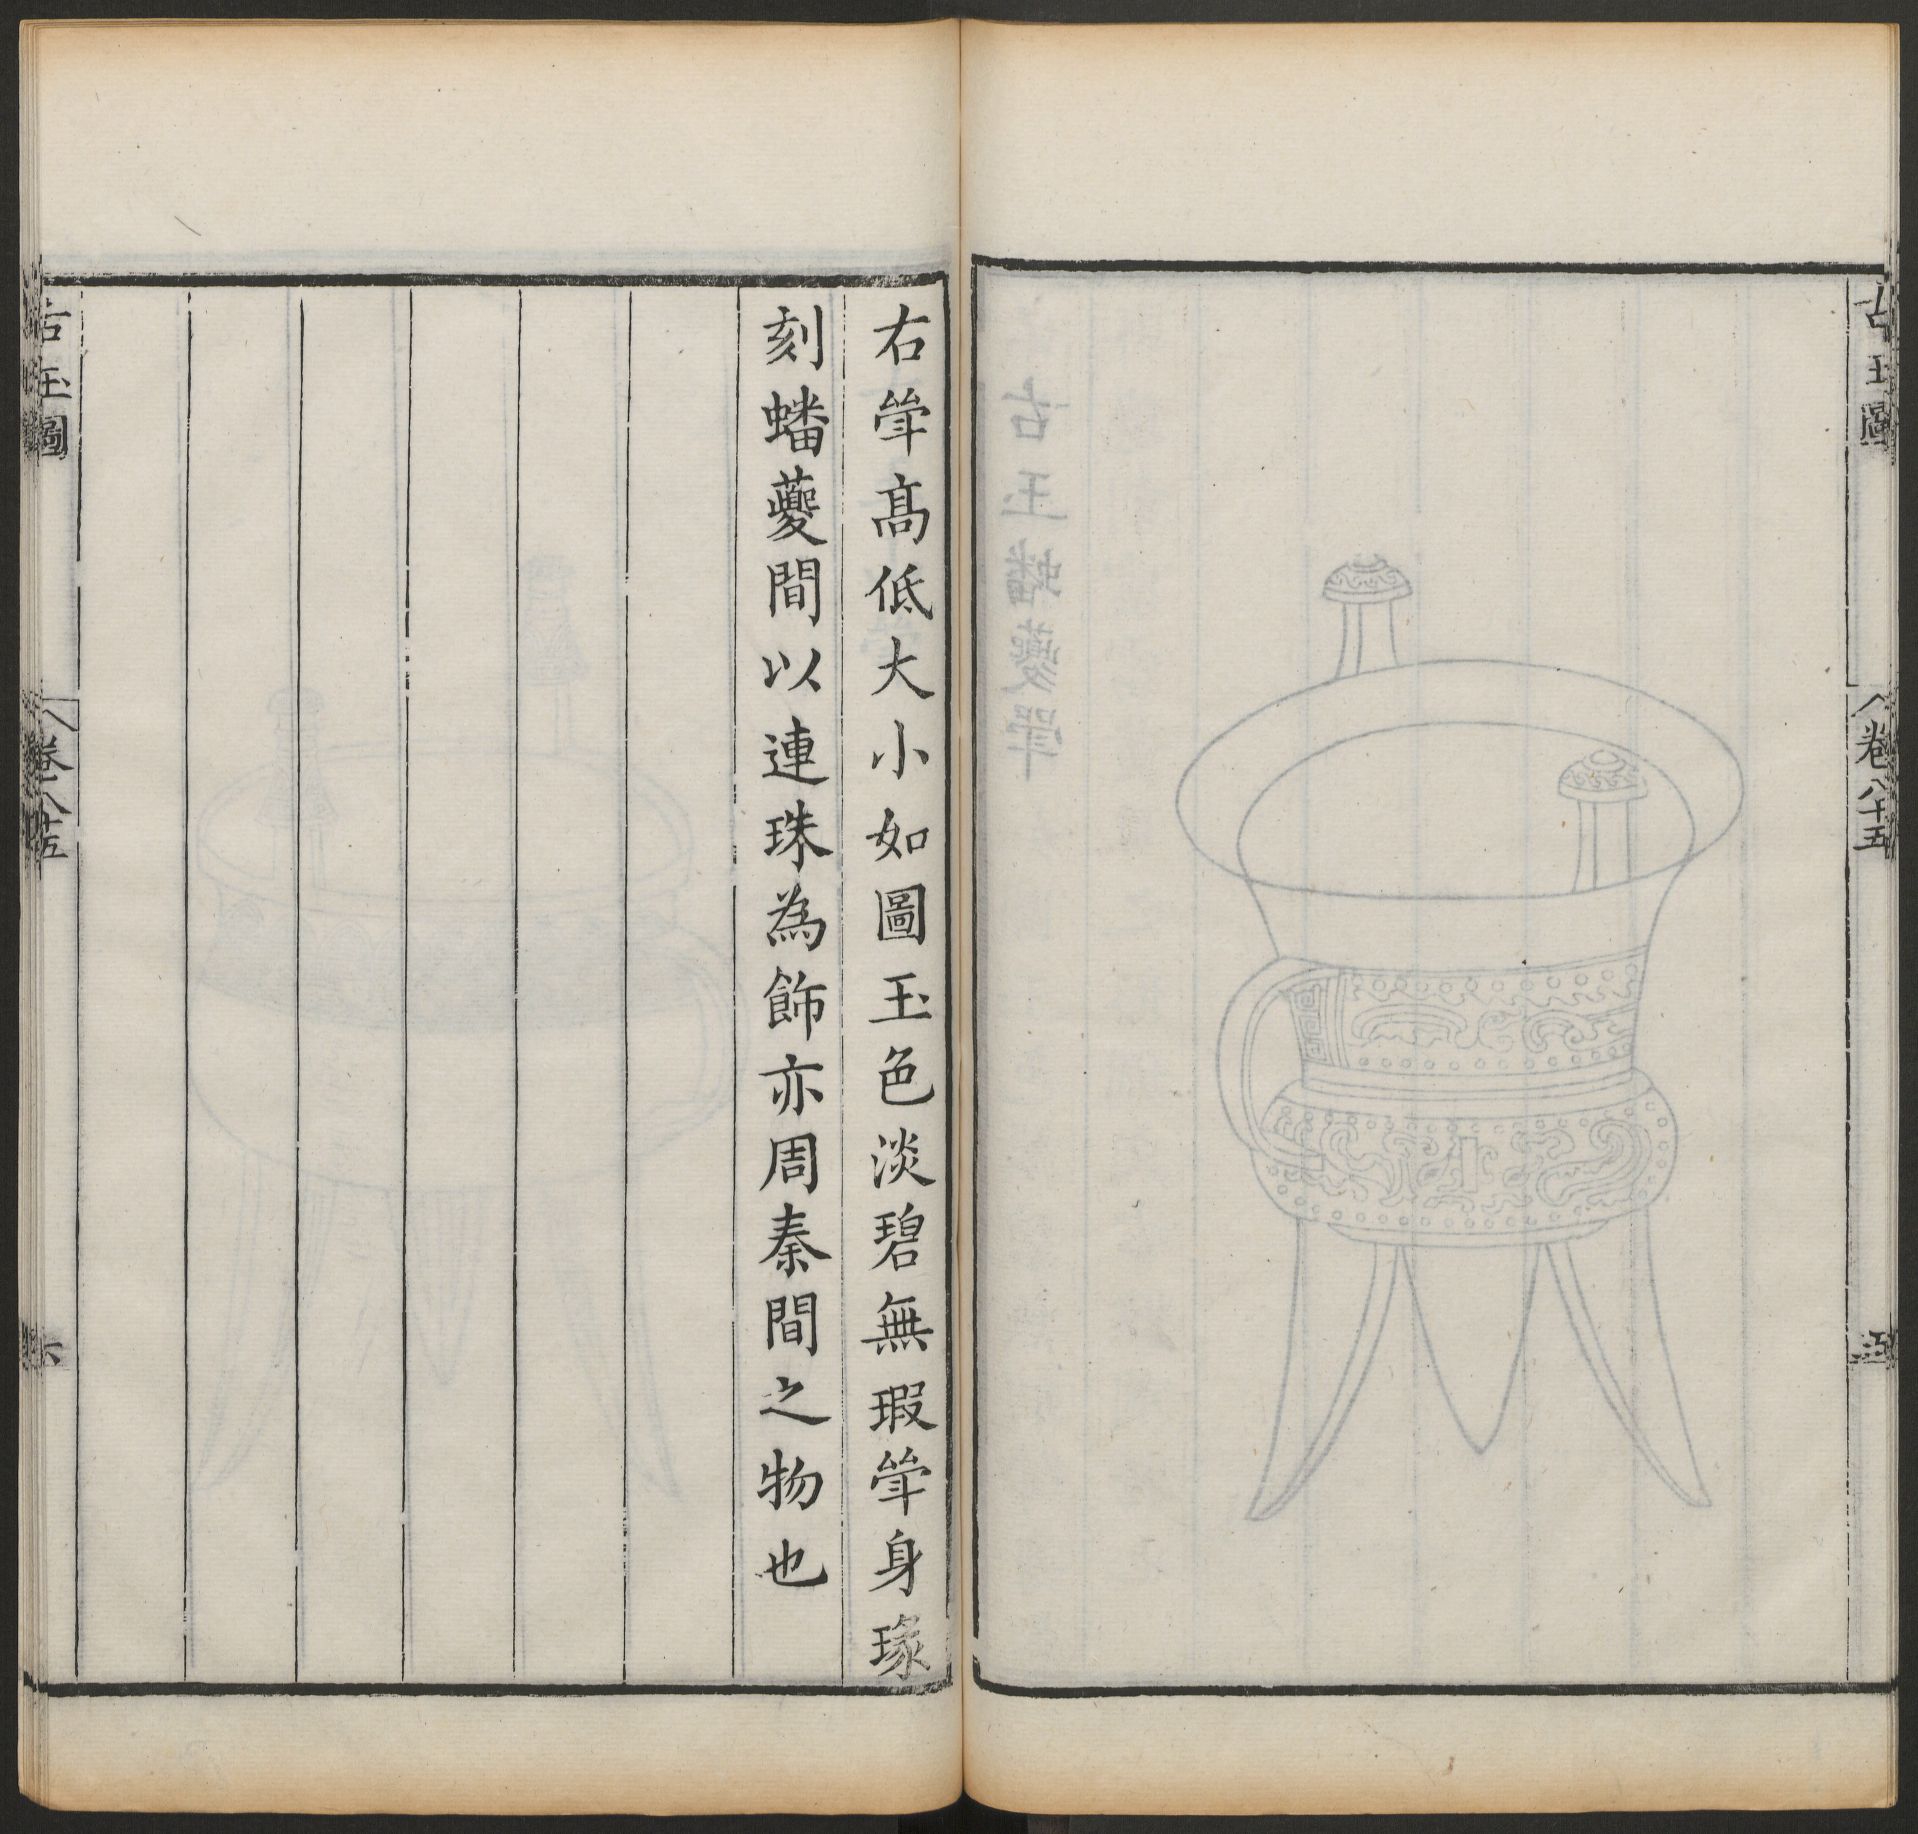 古玉圖
卷八十五
五
右斝高低大小如圖玉色淡碧無瑕斝身瑑
刻蟠夔間以連珠為飾亦周秦間之物也
古玉圖
卷八十五
六